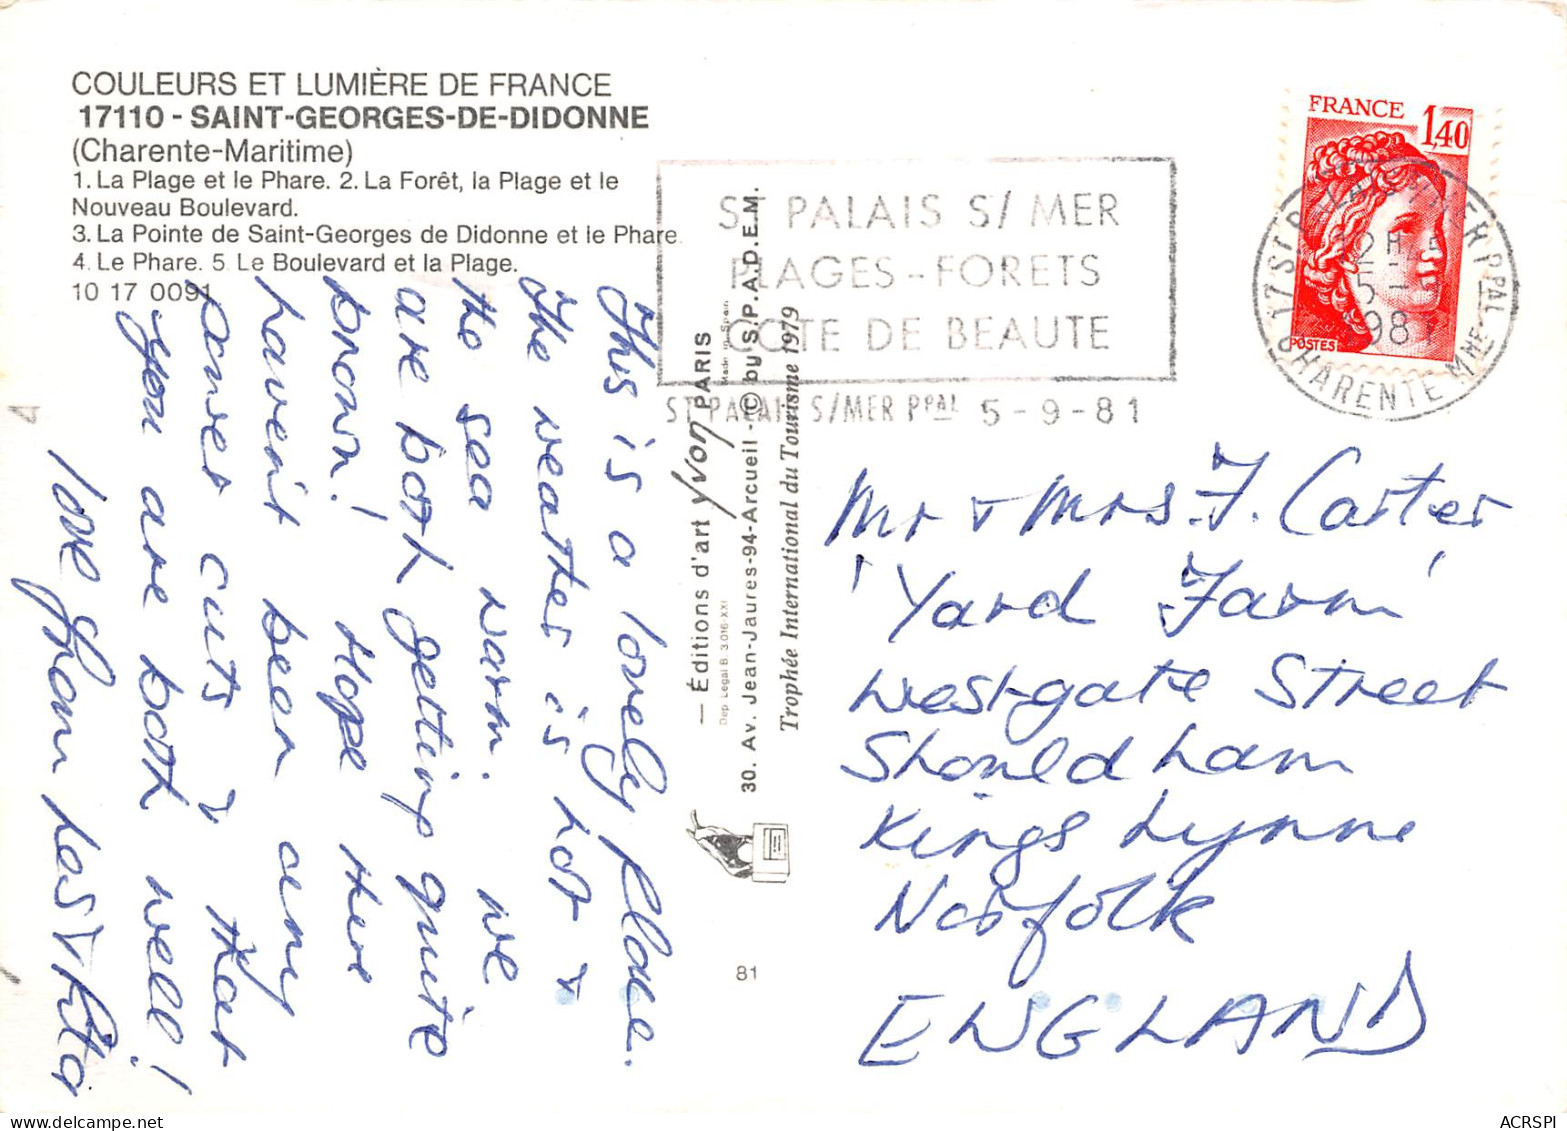 COULEURS ET LUMIÈRE DE FRANCE
17110 - SAINT-GEORGES-DE-DIDONNE
(Charente-Maritime)
1. La Plage et le Phare. 2. La Forêt, la Plage et le
Nouveau Boulevard.
3. La Pointe de Saint-Georges de Didonne et le Phare.
4. Le Phare. 5. Le Boulevard et la Plage.
10 17 0091
This is a lovely place.
The weather is hot &
the sea warm. We
are both getting quite
brown! Hope there
haven't been any
power cuts & that
you are both well!
love from Les & Rita
— Éditions d'art Yvon PARIS
Made in Spain
Dep. Legal B. 3.016-XXI
30. Av. Jean-Jaures-94-Arcueil - © by S.P.A.D.E.M.
Trophée International du Tourisme 1979
81
ST PALAIS S/ MER
PLAGES - FORETS
COTE DE BEAUTE
ST PALAIS S/MER PPAL 5-9-81
FRANCE
1,40
POSTES
17 ST PALAIS S/MER PPAL
12H
5-9
1981
CHARENTE MME
Mr & Mrs. F. Carter
'Yard Farm'
Westgate Street
Shouldham
Kings Lynne
Norfolk
ENGLAND
ACRSPI